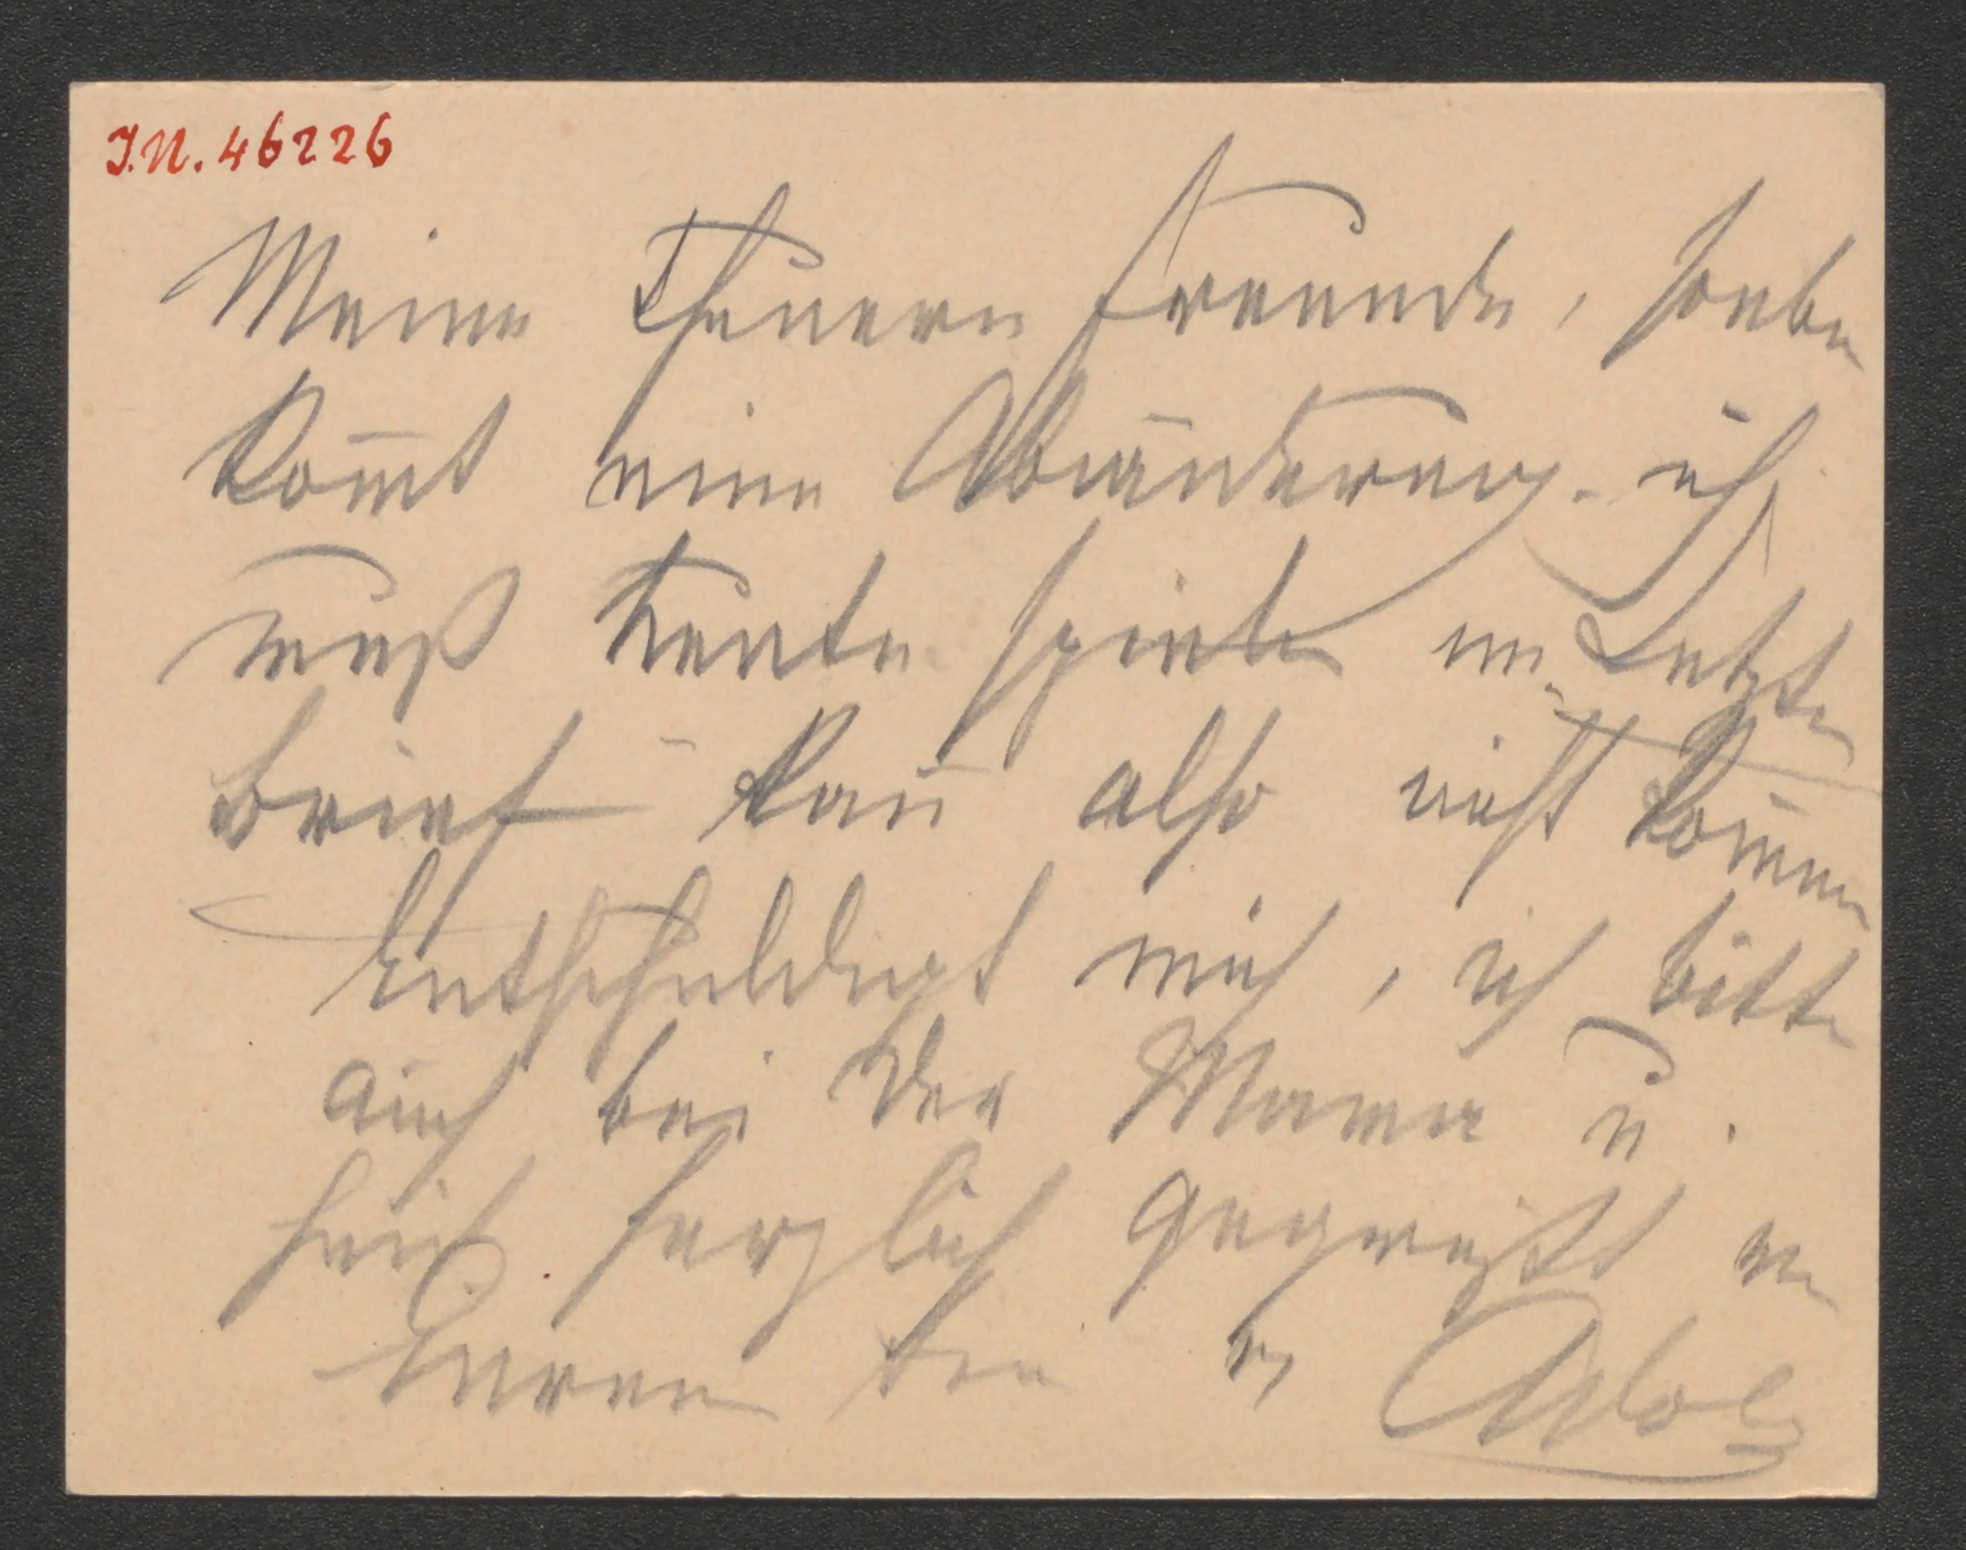 I.N. 46226
Meine Theuern Freunde, soeben
kom̄t eine Abänderung. ich
muß heute spielen im Letzten
Brief – kan̄ also nicht kom̄en
Entschuldigt mich, ich bitte
auch bei der Mama u.
seid herzlich gegrüßt von
Euren